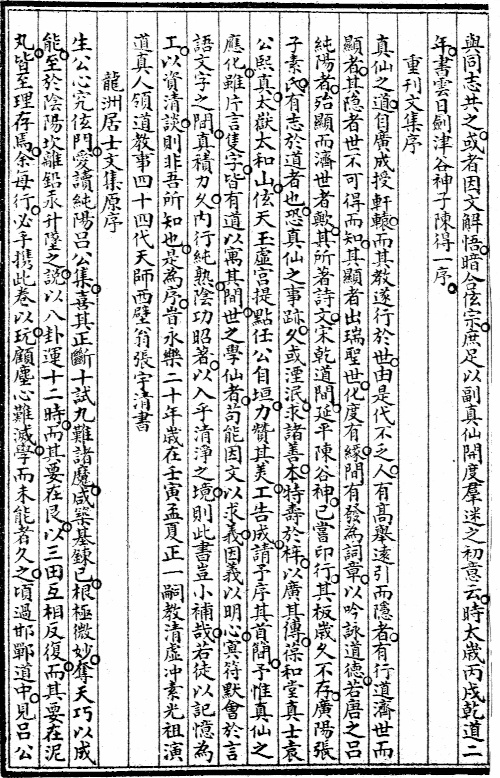 與同志共之或者因文解悟暗合伭宗庶足以副真仙開度羣迷之初意云時太歲丙戌乾道二
年書雲日劍津谷神子陳得一序
重刊文集序
真仙之道自廣成授軒轅而其教遂行於世由是代不乏人有高舉遠引而隱者有行道濟世而
顯者其隐者世不可得而知其顯者出瑞聖世化度有緣間有發為詞章以吟詠道德若唐之呂
純陽者殆顯而濟世者歟其所著詩文宋乾道間延平陳谷神已嘗印行其板歲久不存廣陽張
子素內有志於道者也恐真仙之事跡久或湮泯求諸善本特壽於梓以廣其傳葆和堂真士袁
公熙真太嶽太和山伭天玉虛宮提點任公自垣力贊其美工告成請予序其首簡予惟真仙之
應化雖片言隻字皆有道以寓其間世之學仙者苟能因文以求義因義以明心冥符默會於言
語文字之間真積力久內行純熟陰功昭著以入乎清淨之境則此書豈小補哉若徒以記憶為
工以資清談則非吾所知也是為序旹永樂二十年歲在壬寅孟夏正一嗣教清虛冲素光祖演
道真人領道教事四十四代天師西壁翁張宇清書
龍洲居士文集原序
生公心究伭門愛讀純陽呂公集喜其正斷十試九難諸魔咸築基鍊已根極微妙奪天巧以成
能至於陰陽坎離鉛汞升墮之說以八卦運十二時而其要在艮以三田互相反復而其要在泥
丸皆至理存焉余每行必手携此卷以玩顧塵心難滅學而未能者久之頃過邯鄲道中見呂公